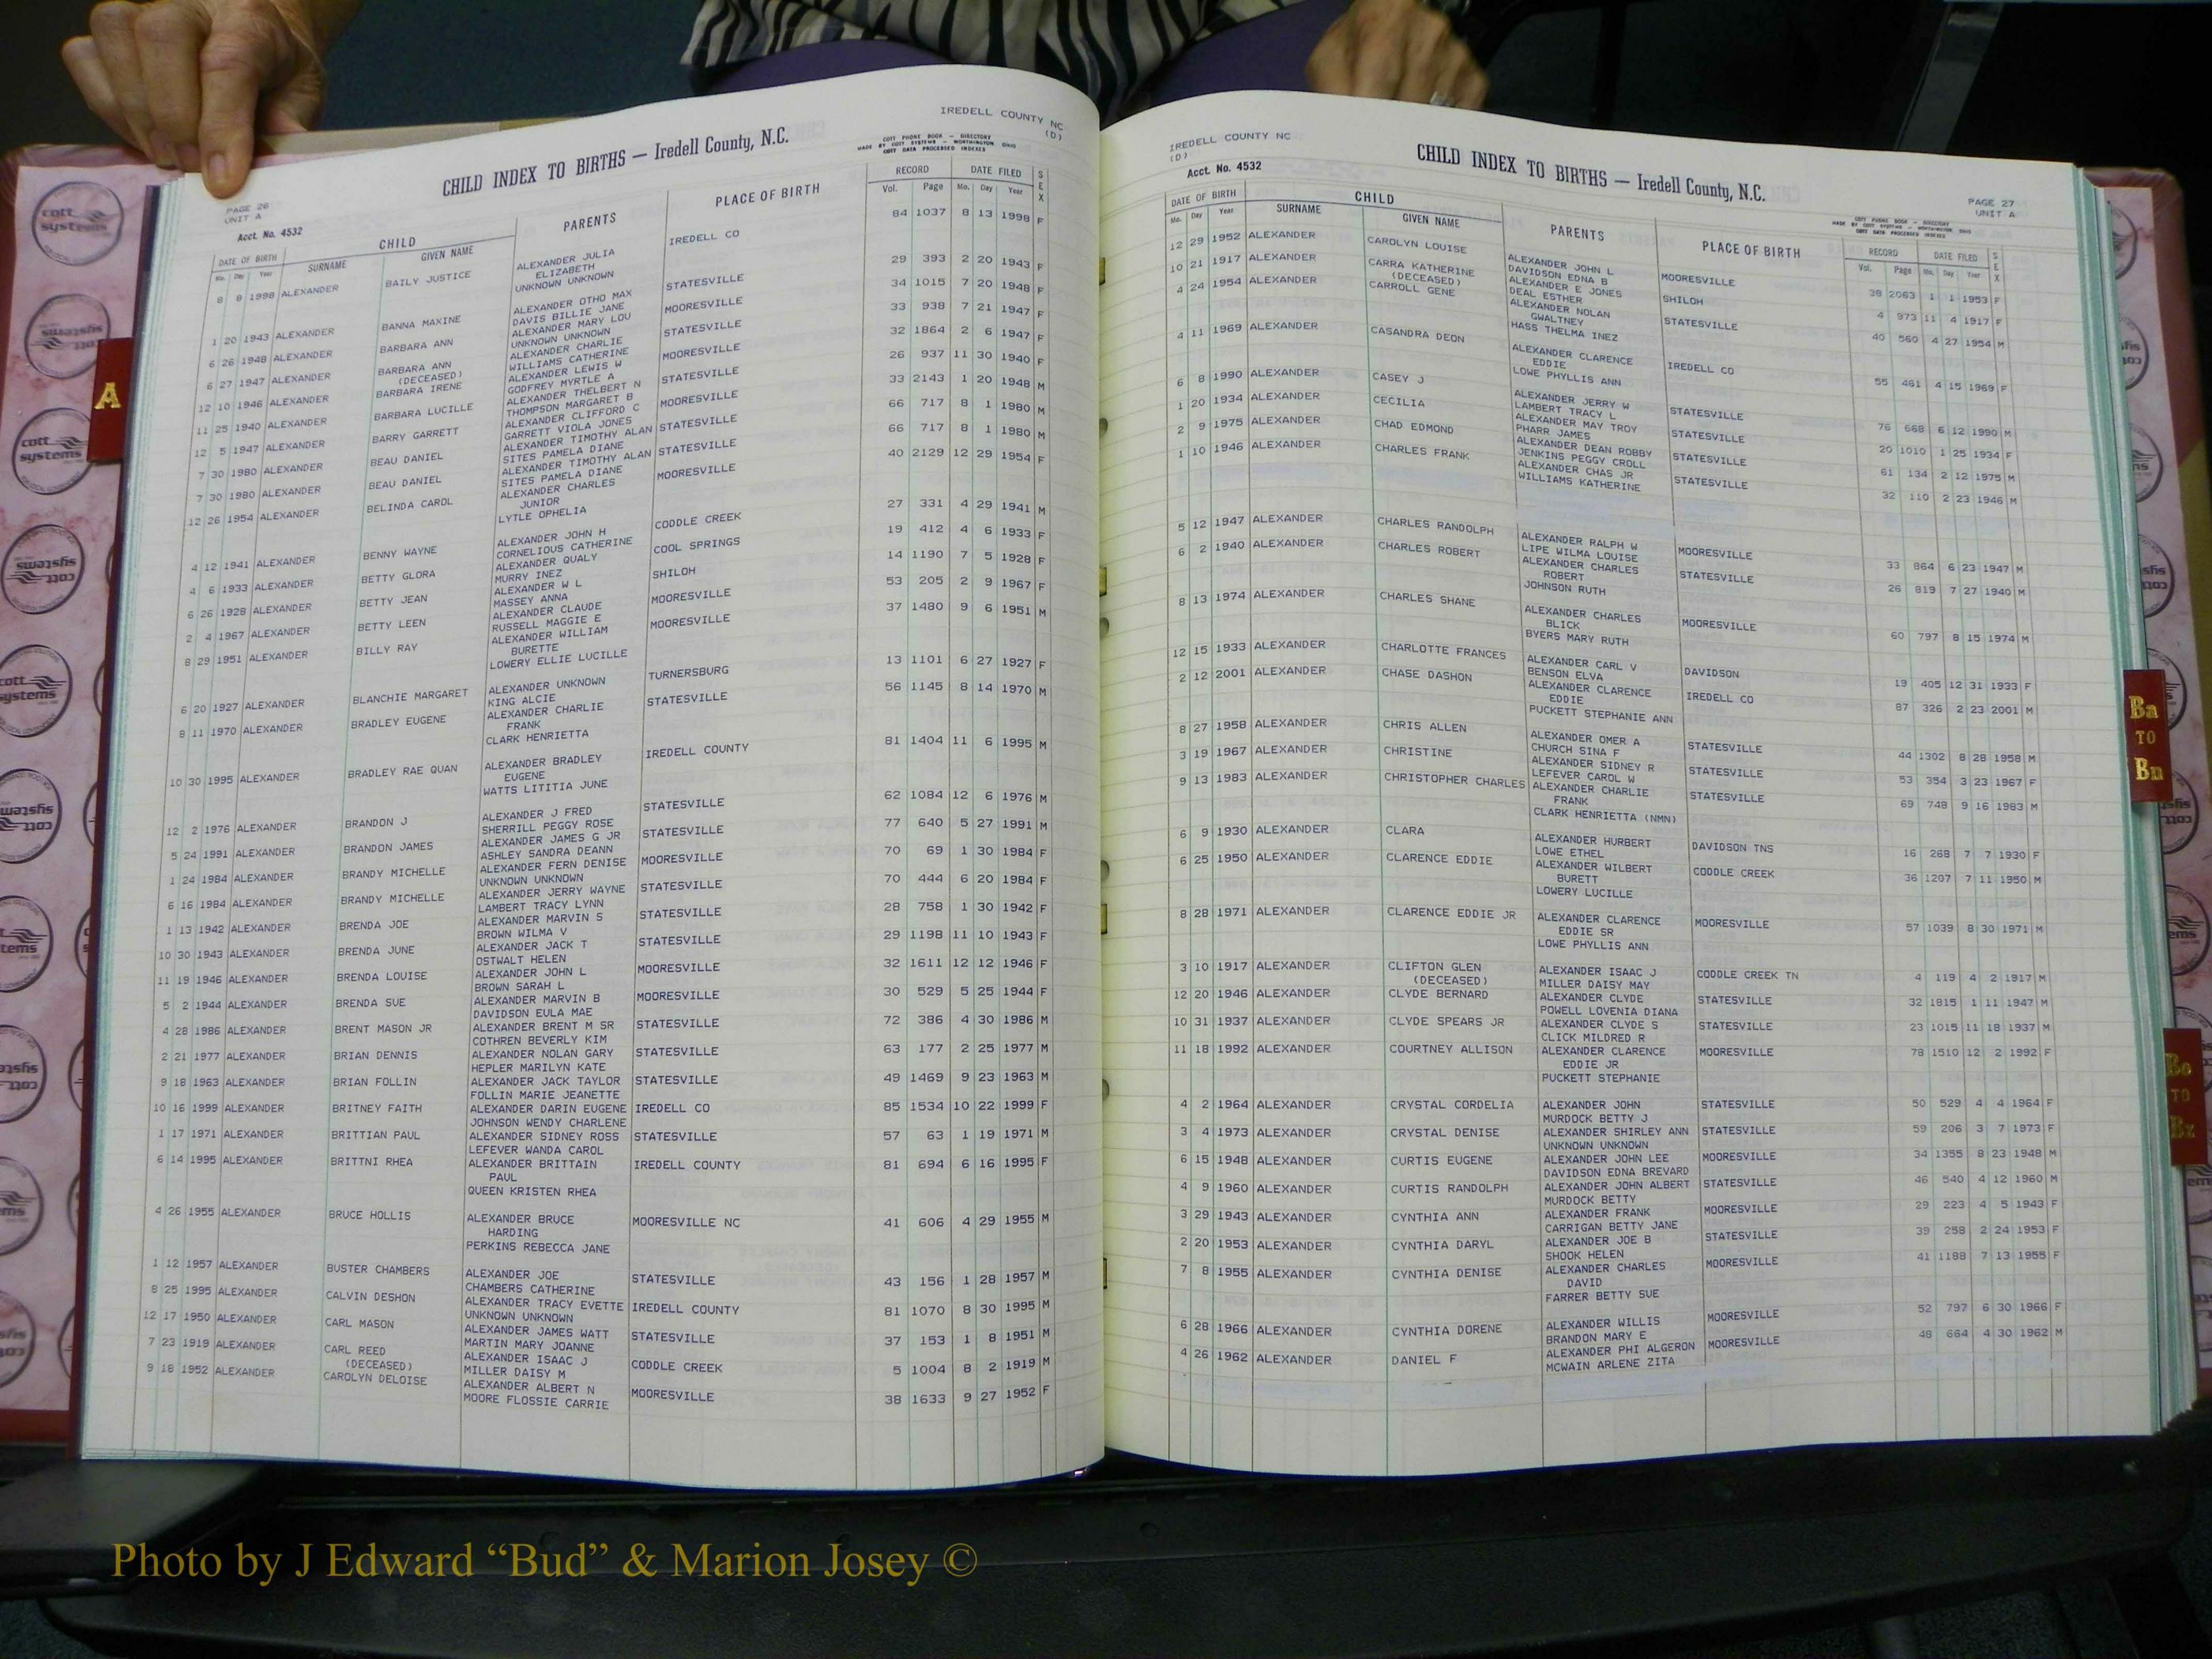 IREDELL COUNTY NC
(D)
CHILD INDEX TO BIRTHS — Iredell County, N.C.
COTT PHONE BOOK — DIRECTORY
MADE BY COTT SYSTEMS — WORTHINGTON, OHIO
COTT DATA PROCESSED INDEXES
PAGE 26
UNIT A
Acct. No. 4532
DATE OF BIRTH CHILD PARENTS PLACE OF BIRTH RECORD DATE FILED SEX
Mo. Day Year SURNAME GIVEN NAME Vol. Page Mo. Day Year
8 8 1998 ALEXANDER BAILY JUSTICE ALEXANDER JULIA IREDELL CO 84 1037 8 13 1998 F
ELIZABETH
UNKNOWN UNKNOWN
1 20 1943 ALEXANDER BANNA MAXINE ALEXANDER OTHO MAX STATESVILLE 29 393 2 20 1943 F
DAVIS BILLIE JANE
6 26 1948 ALEXANDER BARBARA ANN ALEXANDER MARY LOU MOORESVILLE 34 1015 7 20 1948 F
UNKNOWN UNKNOWN
6 27 1947 ALEXANDER BARBARA ANN ALEXANDER CHARLIE STATESVILLE 33 938 7 21 1947 F
(DECEASED) WILLIAMS CATHERINE
12 10 1946 ALEXANDER BARBARA IRENE ALEXANDER LEWIS W MOORESVILLE 32 1864 2 6 1947 F
GODFREY MYRTLE A
11 25 1940 ALEXANDER BARBARA LUCILLE ALEXANDER THELBERT N STATESVILLE 26 937 11 30 1940 F
THOMPSON MARGARET B
12 5 1947 ALEXANDER BARRY GARRETT ALEXANDER CLIFFORD C MOORESVILLE 33 2143 1 20 1948 M
GARRETT VIOLA JONES
7 30 1980 ALEXANDER BEAU DANIEL ALEXANDER TIMOTHY ALAN STATESVILLE 66 717 8 1 1980 M
SITES PAMELA DIANE
7 30 1980 ALEXANDER BEAU DANIEL ALEXANDER TIMOTHY ALAN STATESVILLE 66 717 8 1 1980 M
SITES PAMELA DIANE
12 26 1954 ALEXANDER BELINDA CAROL ALEXANDER CHARLES MOORESVILLE 40 2129 12 29 1954 F
JUNIOR
LYTLE OPHELIA
4 12 1941 ALEXANDER BENNY WAYNE ALEXANDER JOHN H CODDLE CREEK 27 331 4 29 1941 M
CORNELIOUS CATHERINE
4 6 1933 ALEXANDER BETTY GLORA ALEXANDER QUALY COOL SPRINGS 19 412 4 6 1933 F
MURRY INEZ
6 26 1928 ALEXANDER BETTY JEAN ALEXANDER W L SHILOH 14 1190 7 5 1928 F
MASSEY ANNA
2 4 1967 ALEXANDER BETTY LEEN ALEXANDER CLAUDE MOORESVILLE 53 205 2 9 1967 F
RUSSELL MAGGIE E
8 29 1951 ALEXANDER BILLY RAY ALEXANDER WILLIAM MOORESVILLE 37 1480 9 6 1951 M
BURETTE
LOWERY ELLIE LUCILLE
6 20 1927 ALEXANDER BLANCHIE MARGARET ALEXANDER UNKNOWN TURNERSBURG 13 1101 6 27 1927 F
KING ALCIE
8 11 1970 ALEXANDER BRADLEY EUGENE ALEXANDER CHARLIE STATESVILLE 56 1145 8 14 1970 M
FRANK
CLARK HENRIETTA
10 30 1995 ALEXANDER BRADLEY RAE QUAN ALEXANDER BRADLEY IREDELL COUNTY 81 1404 11 6 1995 M
EUGENE
WATTS LITITIA JUNE
12 2 1976 ALEXANDER BRANDON J ALEXANDER J FRED STATESVILLE 62 1084 12 6 1976 M
SHERRILL PEGGY ROSE
5 24 1991 ALEXANDER BRANDON JAMES ALEXANDER JAMES G JR STATESVILLE 77 640 5 27 1991 M
ASHLEY SANDRA DEANN
1 24 1984 ALEXANDER BRANDY MICHELLE ALEXANDER FERN DENISE MOORESVILLE 70 69 1 30 1984 F
UNKNOWN UNKNOWN
6 16 1984 ALEXANDER BRANDY MICHELLE ALEXANDER JERRY WAYNE STATESVILLE 70 444 6 20 1984 F
LAMBERT TRACY LYNN
1 13 1942 ALEXANDER BRENDA JOE ALEXANDER MARVIN S STATESVILLE 28 758 1 30 1942 F
BROWN WILMA V
10 30 1943 ALEXANDER BRENDA JUNE ALEXANDER JACK T STATESVILLE 29 1198 11 10 1943 F
OSTWALT HELEN
11 19 1946 ALEXANDER BRENDA LOUISE ALEXANDER JOHN L MOORESVILLE 32 1611 12 12 1946 F
BROWN SARAH L
5 2 1944 ALEXANDER BRENDA SUE ALEXANDER MARVIN B MOORESVILLE 30 529 5 25 1944 F
DAVIDSON EULA MAE
4 28 1986 ALEXANDER BRENT MASON JR ALEXANDER BRENT M SR STATESVILLE 72 386 4 30 1986 M
COTHREN BEVERLY KIM
2 21 1977 ALEXANDER BRIAN DENNIS ALEXANDER NOLAN GARY STATESVILLE 63 177 2 25 1977 M
HEPLER MARILYN KATE
9 18 1963 ALEXANDER BRIAN FOLLIN ALEXANDER JACK TAYLOR STATESVILLE 49 1469 9 23 1963 M
FOLLIN MARIE JEANETTE
10 16 1999 ALEXANDER BRITNEY FAITH ALEXANDER DARIN EUGENE IREDELL CO 85 1534 10 22 1999 F
JOHNSON WENDY CHARLENE
1 17 1971 ALEXANDER BRITTIAN PAUL ALEXANDER SIDNEY ROSS STATESVILLE 57 63 1 19 1971 M
LEFEVER WANDA CAROL
6 14 1995 ALEXANDER BRITTNI RHEA ALEXANDER BRITTAIN IREDELL COUNTY 81 694 6 16 1995 F
PAUL
QUEEN KRISTEN RHEA
4 26 1955 ALEXANDER BRUCE HOLLIS ALEXANDER BRUCE MOORESVILLE NC 41 606 4 29 1955 M
HARDING
PERKINS REBECCA JANE
1 12 1957 ALEXANDER BUSTER CHAMBERS ALEXANDER JOE STATESVILLE 43 156 1 28 1957 M
CHAMBERS CATHERINE
8 25 1995 ALEXANDER CALVIN DESHON ALEXANDER TRACY EVETTE IREDELL COUNTY 81 1070 8 30 1995 M
UNKNOWN UNKNOWN
12 17 1950 ALEXANDER CARL MASON ALEXANDER JAMES WATT STATESVILLE 37 153 1 8 1951 M
MARTIN MARY JOANNE
7 23 1919 ALEXANDER CARL REED ALEXANDER ISAAC J CODDLE CREEK 5 1004 8 2 1919 M
(DECEASED) MILLER DAISY M
9 18 1952 ALEXANDER CAROLYN DELOISE ALEXANDER ALBERT N MOORESVILLE 38 1633 9 27 1952 F
MOORE FLOSSIE CARRIE
IREDELL COUNTY NC
(D)
Acct. No. 4532
CHILD INDEX TO BIRTHS — Iredell County, N.C.
PAGE 27
UNIT A
COTT PHONE BOOK — DIRECTORY
MADE BY COTT SYSTEMS — WORTHINGTON, OHIO
COTT DATA PROCESSED INDEXES
DATE OF BIRTH CHILD PARENTS PLACE OF BIRTH RECORD DATE FILED SEX
Mo. Day Year SURNAME GIVEN NAME Vol. Page Mo. Day Year
12 29 1952 ALEXANDER CAROLYN LOUISE ALEXANDER JOHN L MOORESVILLE 38 2063 1 1 1953 F
DAVIDSON EDNA B
10 21 1917 ALEXANDER CARRA KATHERINE ALEXANDER E JONES SHILOH 4 973 11 4 1917 F
(DECEASED) DEAL ESTHER
4 24 1954 ALEXANDER CARROLL GENE ALEXANDER NOLAN STATESVILLE 40 560 4 27 1954 M
GWALTNEY
HASS THELMA INEZ
4 11 1969 ALEXANDER CASANDRA DEON ALEXANDER CLARENCE IREDELL CO 55 461 4 15 1969 F
EDDIE
LOWE PHYLLIS ANN
6 8 1990 ALEXANDER CASEY J ALEXANDER JERRY W STATESVILLE 76 668 6 12 1990 M
LAMBERT TRACY L
1 20 1934 ALEXANDER CECILIA ALEXANDER MAY TROY STATESVILLE 20 1010 1 25 1934 F
PHARR JAMES
2 9 1975 ALEXANDER CHAD EDMOND ALEXANDER DEAN ROBBY STATESVILLE 61 134 2 12 1975 M
JENKINS PEGGY CROLL
1 10 1946 ALEXANDER CHARLES FRANK ALEXANDER CHAS JR STATESVILLE 32 110 2 23 1946 M
WILLIAMS KATHERINE
5 12 1947 ALEXANDER CHARLES RANDOLPH ALEXANDER RALPH W MOORESVILLE 33 864 6 23 1947 M
LIPE WILMA LOUISE
6 2 1940 ALEXANDER CHARLES ROBERT ALEXANDER CHARLES STATESVILLE 26 819 7 27 1940 M
ROBERT
JOHNSON RUTH
8 13 1974 ALEXANDER CHARLES SHANE ALEXANDER CHARLES MOORESVILLE 60 797 8 15 1974 M
BLICK
BYERS MARY RUTH
12 15 1933 ALEXANDER CHARLOTTE FRANCES ALEXANDER CARL V DAVIDSON 19 405 12 31 1933 F
BENSON ELVA
2 12 2001 ALEXANDER CHASE DASHON ALEXANDER CLARENCE IREDELL CO 87 326 2 23 2001 M
EDDIE
PUCKETT STEPHANIE ANN
8 27 1958 ALEXANDER CHRIS ALLEN ALEXANDER OMER A STATESVILLE 44 1302 8 28 1958 M
CHURCH SINA F
3 19 1967 ALEXANDER CHRISTINE ALEXANDER SIDNEY R STATESVILLE 53 354 3 23 1967 F
LEFEVER CAROL W
9 13 1983 ALEXANDER CHRISTOPHER CHARLES ALEXANDER CHARLIE STATESVILLE 69 748 9 16 1983 M
FRANK
CLARK HENRIETTA (NMN)
6 9 1930 ALEXANDER CLARA ALEXANDER HURBERT DAVIDSON TNS 16 268 7 7 1930 F
LOWE ETHEL
6 25 1950 ALEXANDER CLARENCE EDDIE ALEXANDER WILBERT CODDLE CREEK 36 1207 7 11 1950 M
BURETT
LOWERY LUCILLE
8 28 1971 ALEXANDER CLARENCE EDDIE JR ALEXANDER CLARENCE MOORESVILLE 57 1039 8 30 1971 M
EDDIE SR
LOWE PHYLLIS ANN
3 10 1917 ALEXANDER CLIFTON GLEN ALEXANDER ISAAC J CODDLE CREEK TN 4 119 4 2 1917 M
(DECEASED) MILLER DAISY MAY
12 20 1946 ALEXANDER CLYDE BERNARD ALEXANDER CLYDE STATESVILLE 32 1815 1 11 1947 M
POWELL LOVENIA DIANA
10 31 1937 ALEXANDER CLYDE SPEARS JR ALEXANDER CLYDE S STATESVILLE 23 1015 11 18 1937 M
CLICK MILDRED R
11 18 1992 ALEXANDER COURTNEY ALLISON ALEXANDER CLARENCE MOORESVILLE 78 1510 12 2 1992 F
EDDIE JR
PUCKETT STEPHANIE
4 2 1964 ALEXANDER CRYSTAL CORDELIA ALEXANDER JOHN STATESVILLE 50 529 4 4 1964 F
MURDOCK BETTY J
3 4 1973 ALEXANDER CRYSTAL DENISE ALEXANDER SHIRLEY ANN STATESVILLE 59 206 3 7 1973 F
UNKNOWN UNKNOWN
6 15 1948 ALEXANDER CURTIS EUGENE ALEXANDER JOHN LEE MOORESVILLE 34 1355 8 23 1948 M
DAVIDSON EDNA BREVARD
4 9 1960 ALEXANDER CURTIS RANDOLPH ALEXANDER JOHN ALBERT STATESVILLE 46 540 4 12 1960 M
MURDOCK BETTY
3 29 1943 ALEXANDER CYNTHIA ANN ALEXANDER FRANK MOORESVILLE 29 223 4 5 1943 F
CARRIGAN BETTY JANE
2 20 1953 ALEXANDER CYNTHIA DARYL ALEXANDER JOE B STATESVILLE 39 258 2 24 1953 F
SHOOK HELEN
7 8 1955 ALEXANDER CYNTHIA DENISE ALEXANDER CHARLES MOORESVILLE 41 1188 7 13 1955 F
DAVID
FARRER BETTY SUE
6 28 1966 ALEXANDER CYNTHIA DORENE ALEXANDER WILLIS MOORESVILLE 52 797 6 30 1966 F
BRANDON MARY E
4 26 1962 ALEXANDER DANIEL F ALEXANDER PHI ALGERON MOORESVILLE 48 664 4 30 1962 M
MCWAIN ARLENE ZITA
A
Ba
TO
Bn
Bo
TO
Bz
cott
systems
Photo by J Edward “Bud” & Marion Josey ©